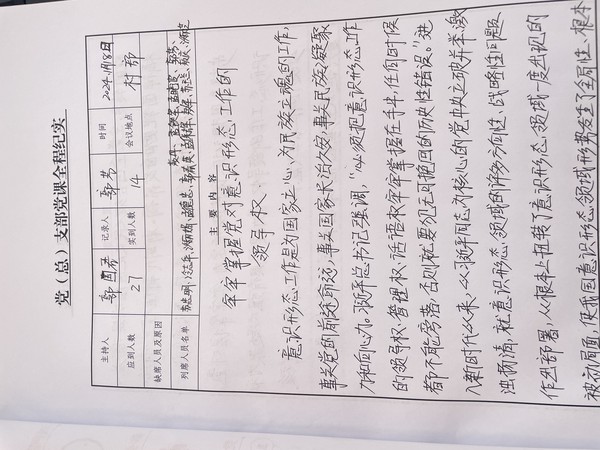 党（总）支部党课全程纪实
主持人 郭国芳 记录人 郭芳 时间 2024.11月8日
应到人数 27 实到人数 14 会议地点 村部
缺席人员及原因
列席人员名单
主要内容
牢牢掌握党对意识形态工作的
领导权
意识形态工作是为国家立心、为民族立魂的工作，
事关党的前途命运，事关国家长治久安，事关民族凝聚
力和向心力。习近平总书记强调，“必须把意识形态工作
的领导权、管理权、话语权牢牢掌握在手中，任何时候
都不能旁落，否则就要犯无可挽回的历史性错误。”进
入新时代以来，以习近平同志为核心的党中央立破并举、激
浊扬清，就意识形态领域的许多方向性、战略性问题
作出部署，从根本上扭转了意识形态领域一度出现的
被动局面，使我国意识形态领域形势发生了全局性、根本